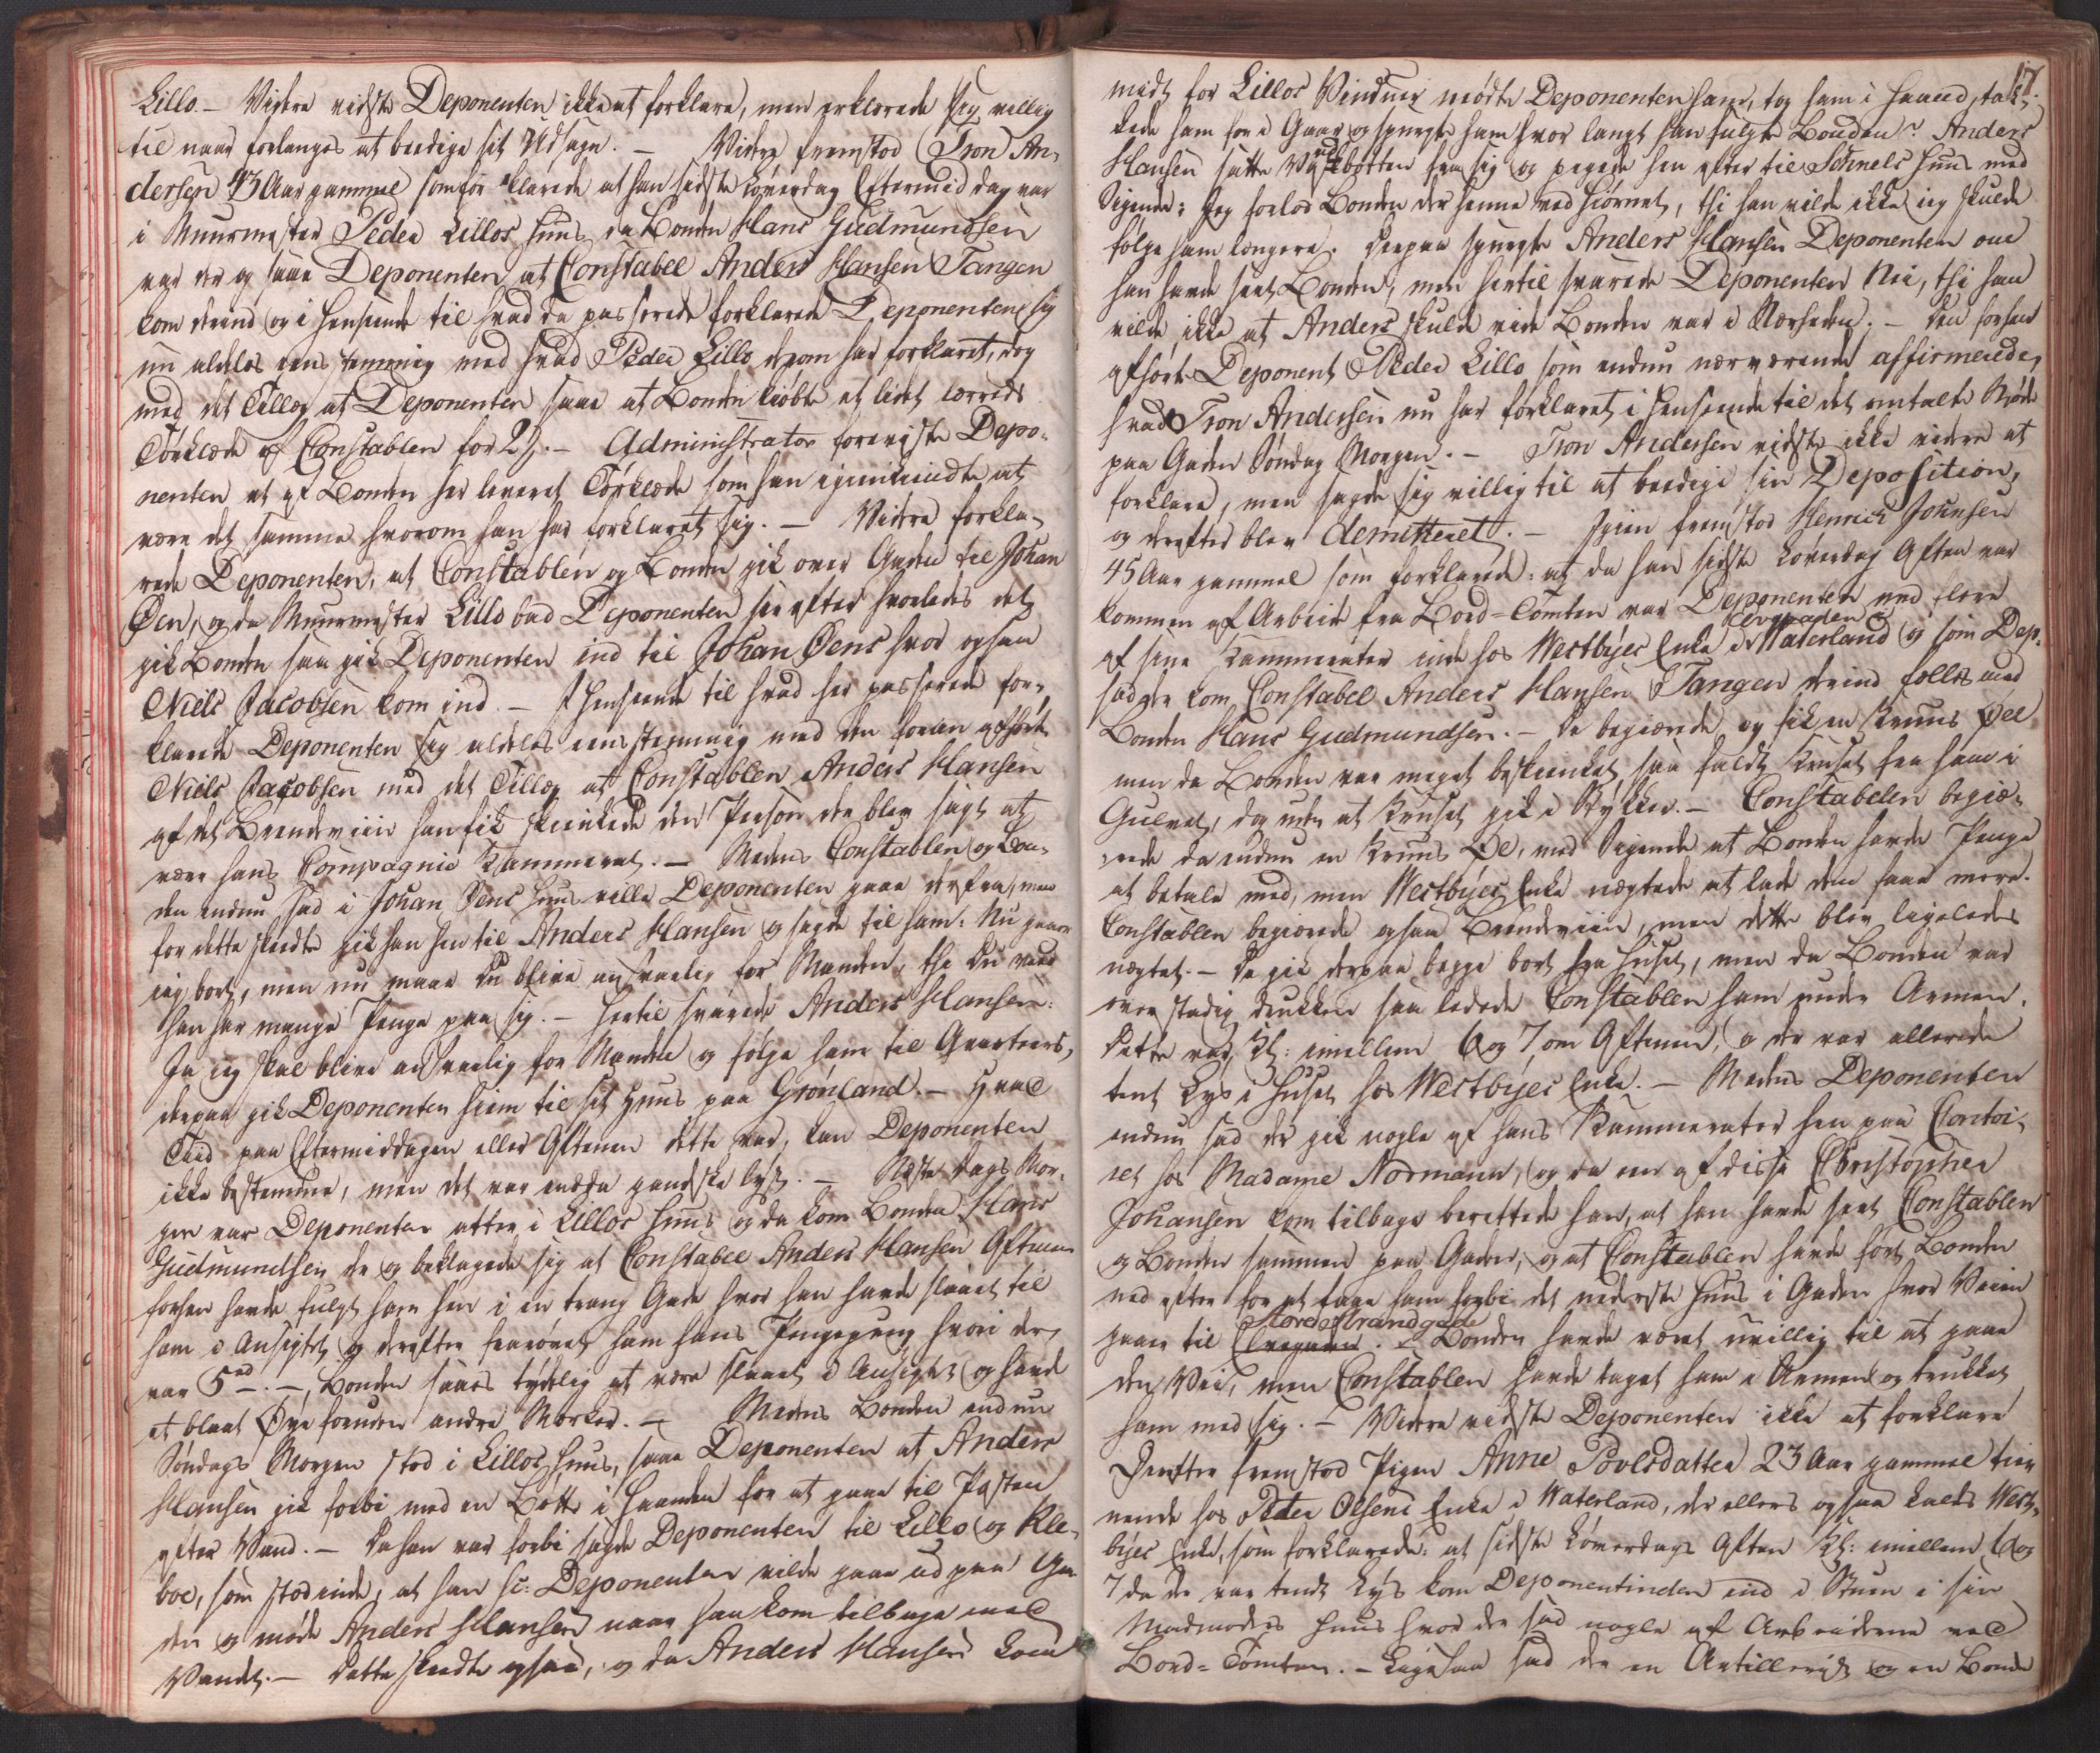 Lillo. – Videre vidste Deponenten ikke at forklare, men erklærede sig villig
til naar forlanges at beedige sit Udsagn. – Videre fremstod Tron An-
dersen 43 Aar gammel som forklarede at han sidste Løverdag Eftermiddag var
i Muurmester Peder Lillos Huus da Bonden Hans Gudmundsen
var der og saae Deponenten at Constabel Anders Hansen Tangen
kom derind og i Henseende til hvad da passerede forklarede Deponenten sig
nu aldeles eensstemmig med hvad Peder Lillo derom har forklaret, dog
med det Tillæg at Deponenten saae at Bonden kiøbte et lidet lærreds
Tørklæde af Constablen for 2 /. – Administrator foreviiste Depo-
nenten et af Bonden her leveret Tørklæde som han igienkiendte at
være det samme hvorom han har forklaret sig. – Videre forkla-
rede Deponenten, at Constablen og Bonden gik over Gaden til Johan
Øen, og da Muurmester Lillo bad Deponenten see efter hvorledes det
gik Bonden saa gik Deponenten ind til Johan Øens hvor ogsaa
Niels Jacobsen kom ind. – I Henseende til hvad her passerede for-
klarede Deponenten sig aldeles eensstemmig med den foran afhørte
Niels Jacobsen med det Tillæg at Constablen Anders Hansen
af det Brændeviin han fik skienkede den Person der blev sagt at
være hans Compagnie Kammerat. – Medens Constablen og Bon-
den endnu sad i Johan Øens Huus ville Deponenten gaae derfra, men
før dette skeedte gik han hen til Anders Hansen og sagde til ham: Nu gaaer
jeg bort, men nu maae Du blive ansvarlig for Manden, thi Du veed
han har mange Penge paa sig. – Hertil svarede Anders Hansen:
Ja jeg skal blive ansvarlig for Manden og følge ham til Qvarteers,
derpaa gik Deponenten hiem til sit Huus paa Grønland. – Hvad
Tiid paa Eftermiddagen eller Aftenen dette var, kan Deponenten
ikke bestemme, men det var endda gandske lyst. – Næste Dags Mor-
gen var Deponenten atter i Lillos Huus og da kom Bonden Hans
Gudmundsen der og beklagede sig at Constabel Anders Hansen Aftenen
forhen havde fulgt ham hen i en trang Gade hvor han havde slaaet til
ham i Ansigtet og derefter frarøvet ham hans Pengepung hvori der
var 5 rd. –, Bonden saaes tydelig at være slaaet i Ansigtet og havde
et blaat Øye foruden andre Mærker. – Medens Bonden endnu
Søndags Morgen stod i Lillos Huus, saae Deponenten at Anders
Hansen gik forbi med en Bøtte i Haanden for at gaae til Posten
efter Vand. – Da han var forbi sagde Deponenten til Lillo og Kle-
boe, som stod inde, at han sc: Deponenten vilde gaae ud paa Ga-
den og møde Anders Hansen naar han kom tilbage med
Vandet. – Dette skeedte ogsaa, og da Anders Hansen kom
17.
midt for Lillos Vinduer mødte Deponenten ham, tog ham i Haand, tak-
kede ham for i Gaar og spurgte ham hvor langt han fulgte Bonden? Anders
Hansen satte Vandbøtten fra sig og pegede hen efter til Schnels Huus med
Sigende: Jeg forlod Bonden der henne ved Hiørnet, thi han vilde ikke jeg skulde
følge ham længere. Derpaa spurgte Anders Hansen Deponenten om
han havde seet Bonden, men hertil svarede Deponenten Nei, thi han
vilde ikke at Anders skulde vide Bonden var i Nærheden. – Den forhen
afhørte Deponent Peder Lillo som endnu nærværende affirmerede,
hvad Tron Andersen nu har forklaret i Henseende til det omtalte Møde
paa Gaden Søndag Morgen. – Tron Andersen vidste ikke videre at
forklare, men sagde sig villig til at beedige sin Deposition,
og derefter blev demitteret. – Igien fremstod Henrich Johnsen
45 Aar gammel som forklarede: at da han sidste Løverdag Aften var
kommen af Arbeide fra Bord-Tomten var Deponenten med flere
af sine Kammerater inde hos Westbyes Enke i Waterland og som Dep.
sad der kom Constabel Anders Hansen Tangen derind følles med
Bonden Hans Gudmundsen. – De begiærede og fik en Kruus Øel
men da Bonden var meget beskienket, saa faldt Kruset fra ham i
Gulvet, dog uden at Kruset gik i Stykker. – Constabelen begiæ-
rede da endnu en Kruus Øl, med Sigende at Bonden havde Penge
at betale med, men Westbyes Enke nægtede at lade dem faae mere.
Constablen begiærede ogsaa Brændeviin, men dette blev ligeledes
nægtet. – De gik derpaa begge bort fra Huset, men da Bonden var
overstadig drukken saa ledede Constablen ham under Armen.
Dette var Kl: imellem 6 og 7 om Aftenen, og der var allerede
tent Lys i Huset hos Westbyes Enke. – Medens Deponenten
endnu sad der gik nogle af hans Kammerater hen paa Contoi-
ret hos Madame Normann, og da en af disse Christopher
Johansen kom tilbage berettede han, at han havde seet Constablen
og Bonden sammen paa Gaden, og at Constablen havde ført Bonden
ned efter for at faae ham forbi det nederste Huus i Gaden hvor Veien
Store Strandgade
gaaer til Elvegaden. – Bonden havde været uvillig til at gaae
den Vei, men Constablen havde taget ham i Armen og trukket
ham med sig. – Videre vidste Deponenten ikke at forklare
Derefter fremstod Pigen Anne Povlsdatter 23 Aar gammel tien-
nende hos Peder Olsens Enke i Waterland, der ellers ogsaa kaldes West-
byes Enke, som forklarede: at sidste Løverdags Aften Kl: imellem 6 og
7 da der var tendt Lys kom Deponentinden ind i Stuen i sin
Madmoders Huus hvor der sad nogle af Arbeiderne ved
Bord-Tomten. – Ligesaa sad der en Artillerist og en Bonde